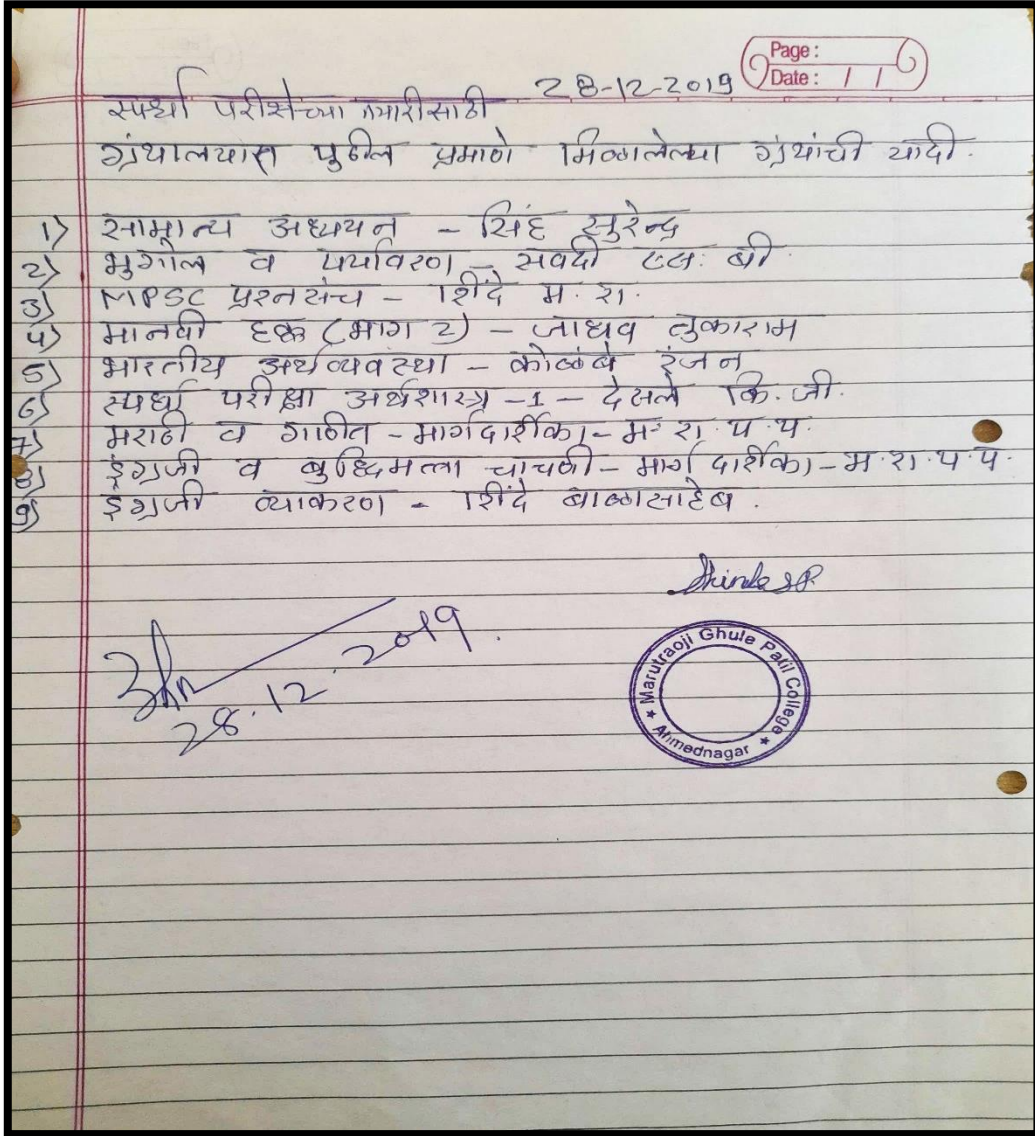 Page :
28-12-2019 Date : / /
स्पर्धा परीक्षेच्या तयारीसाठी
ग्रंथालयास पुढील प्रमाणे मिळालेल्या ग्रंथांची यादी.
1) सामान्य अध्ययन - सिंह सुरेन्द्र
2) भुगोल व पर्यावरण - सवदी एल. बी
3) MPSC प्रश्नसंच - शिंदे म. रा.
4) मानवी हक्क (भाग 2) - जाधव तुकाराम
5) भारतीय अर्थव्यवस्था - कोळंबे रंजन
6) स्पर्धा परीक्षा अर्थशास्त्र -1 - देसले कि. जी.
7) मराठी व गणित - मार्गदर्शिका - म. रा. प. प.
8) इंग्रजी व बुध्दिमत्ता चाचणी - मार्गदर्शिका - म. रा. प. प.
9) इंग्रजी व्याकरण - शिंदे बाळासाहेब.
Shinde S.R.
28.12.2019.
Marutraoji Ghule Patil College
Ahmednagar